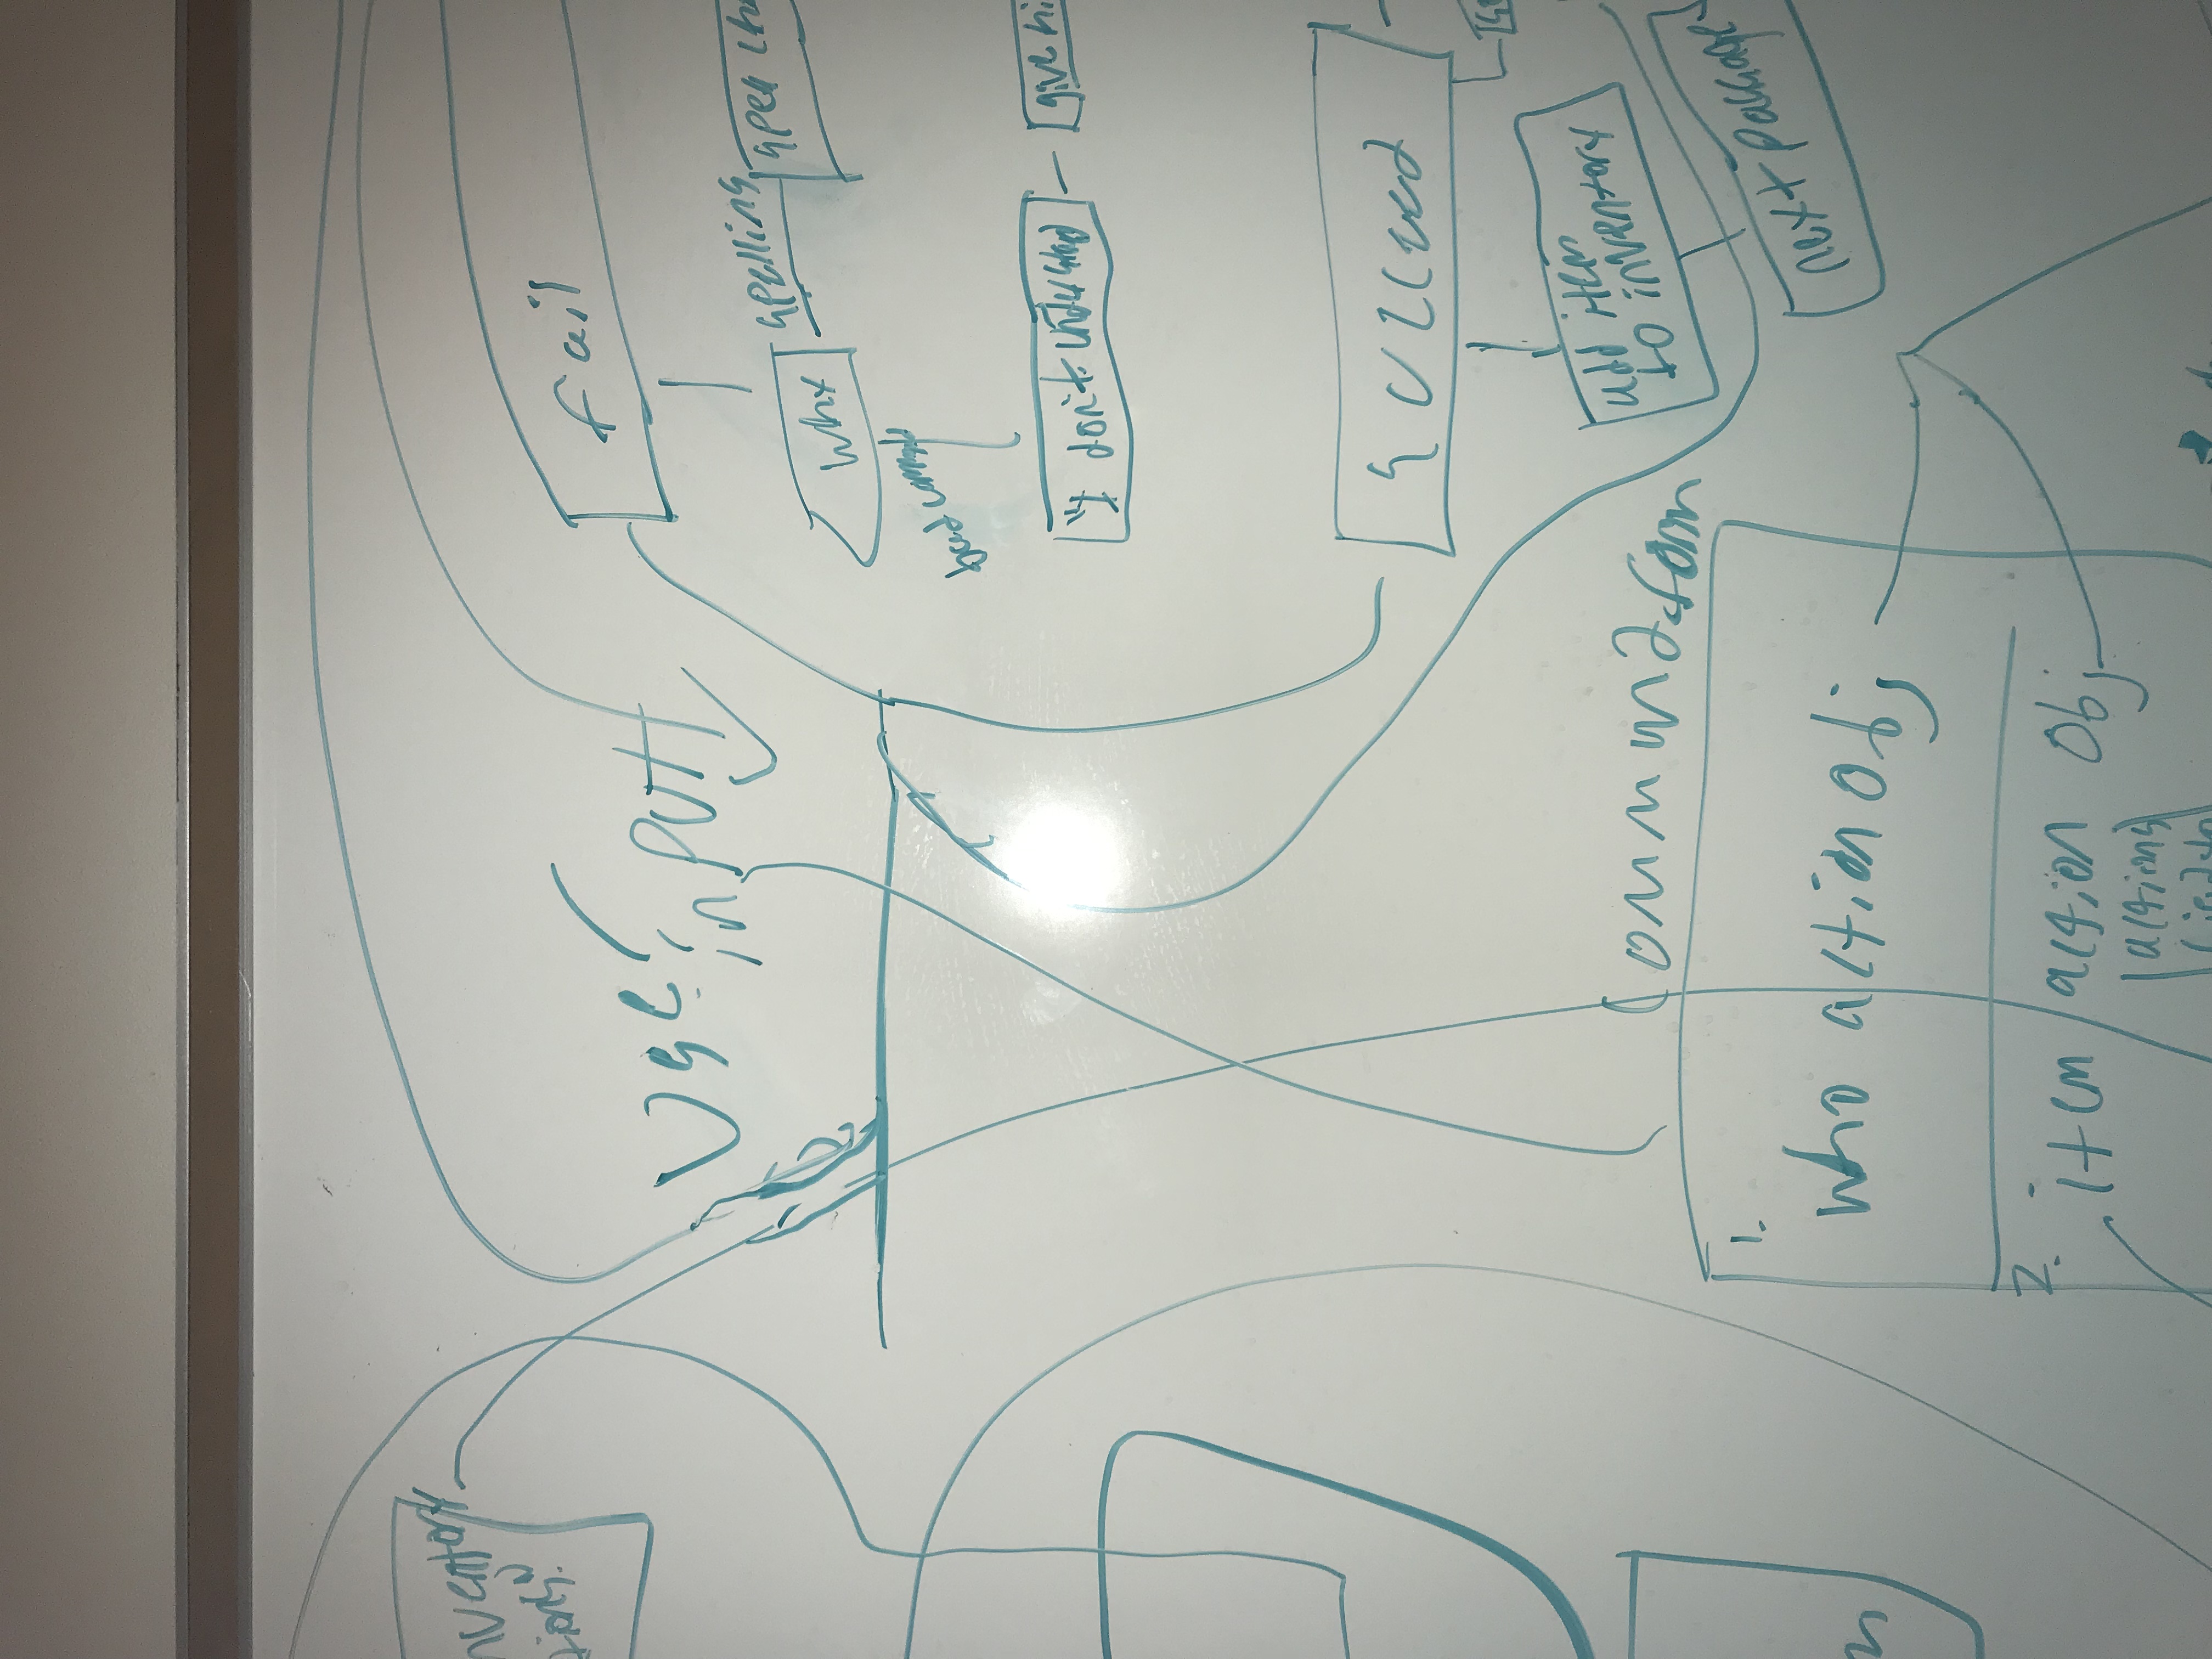 nventory
tions."
User
input
fail
why
spelling
spell
bad command
"I don't understand
give hi
succeed
add item
to inventory
next package
Command form
1.
who action obj
2.
item action obj
actions